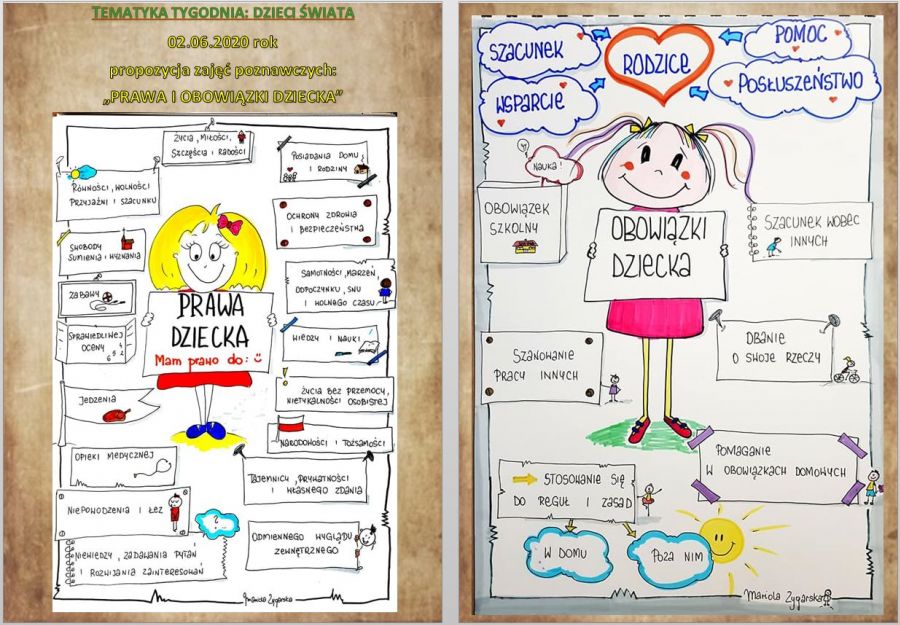 TEMATYKA TYGODNIA: DZIECI ŚWIATA
02.06.2020 rok
propozycja zajęć poznawczych:
„PRAWA I OBOWIĄZKI DZIECKA”
ŻYCIA, MIŁOŚCI,
SZCZĘŚCIA I RADOŚCI
POSIADANIA DOMU
I RODZINY
RÓWNOŚCI, WOLNOŚCI
PRZYJAŹNI I SZACUNKU
OCHRONY ZDROWIA
I BEZPIECZEŃSTWA
SWOBODY
SUMIENIA I WYZNANIA
SAMOTNOŚCI, MARZEŃ
ODPOCZYNKU, SNU
I WOLNEGO CZASU
ZABAWY
PRAWA
DZIECKA
Mam prawo do:
SPRAWIEDLIWEJ
OCENY
4
6 5 2
WIEDZY I NAUKI
ŻYCIA BEZ PRZEMOCY,
NIETYKALNOŚCI OSOBISTEJ
JEDZENIA
NARODOWOŚCI I TOŻSAMOŚCI
OPIEKI MEDYCZNEJ
TAJEMNICY, PRYWATNOŚCI
I WŁASNEGO ZDANIA
NIEPOWODZENIA I ŁEZ
?
ODMIENNEGO WYGLĄDU
ZEWNĘTRZNEGO
NIEWIEDZY, ZADAWANIA PYTAŃ
I ROZWIJANIA ZAINTERESOWAŃ
Mariola Zygarska
SZACUNEK
RODZICE
POMOC
WSPARCIE
POSŁUSZEŃSTWO
NAUKA!
OBOWIĄZEK
SZKOLNY
OBOWIĄZKI
DZIECKA
SZACUNEK WOBEC
INNYCH
SZANOWANIE
PRACY INNYCH
DBANIE
O SWOJE RZECZY
POMAGANIE
W OBOWIĄZKACH DOMOWYCH
STOSOWANIE SIĘ
DO REGUŁ I ZASAD
W DOMU
POZA NIM
Mariola Zygarska